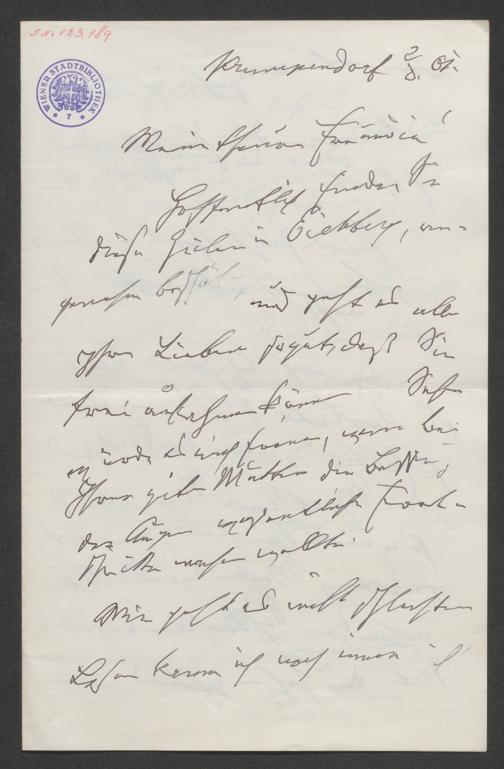 J.N. 123.189
WIENER STADTBIBLIOTHEK
7
Krumpendorf 2/8. 01.
Mein theurer Freund!
Hoffentlich finden Sie
diese Zeilen in Eichberg, an-
genehm
und geht es alle
Ihren Lieben so gut, daß Sie
frei aufathmen können Sehr
würde es mich freuen, wenn bei
Ihrer guten Mutter die Besse-
der Augen wesentliche Fort-
schritte machen wollte.
Mir geht es nicht schlechter
Lesen kann ich noch immer